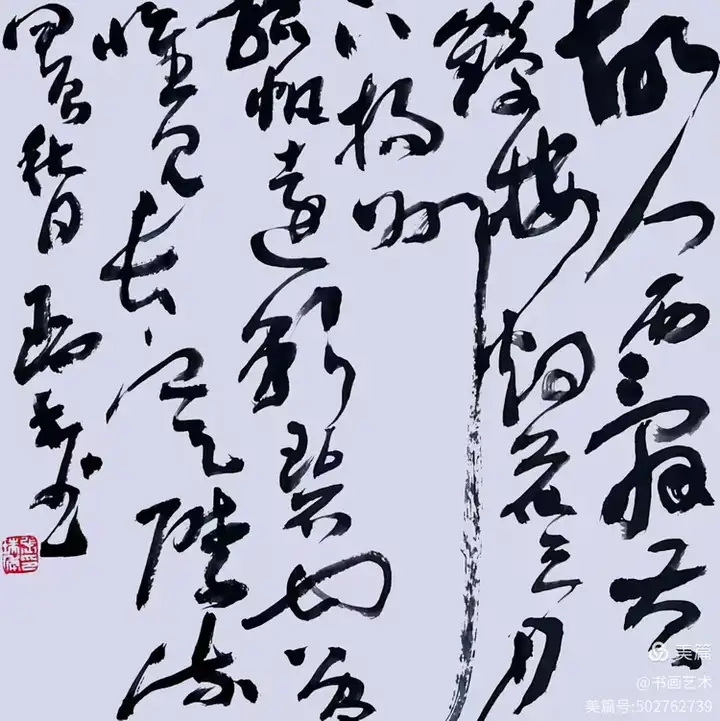 故人西辞黄
鹤楼烟花三月
下扬州
孤帆遠影碧空尽
唯见长江天际流
秋日
美篇
@书画艺术
美篇号:502762739